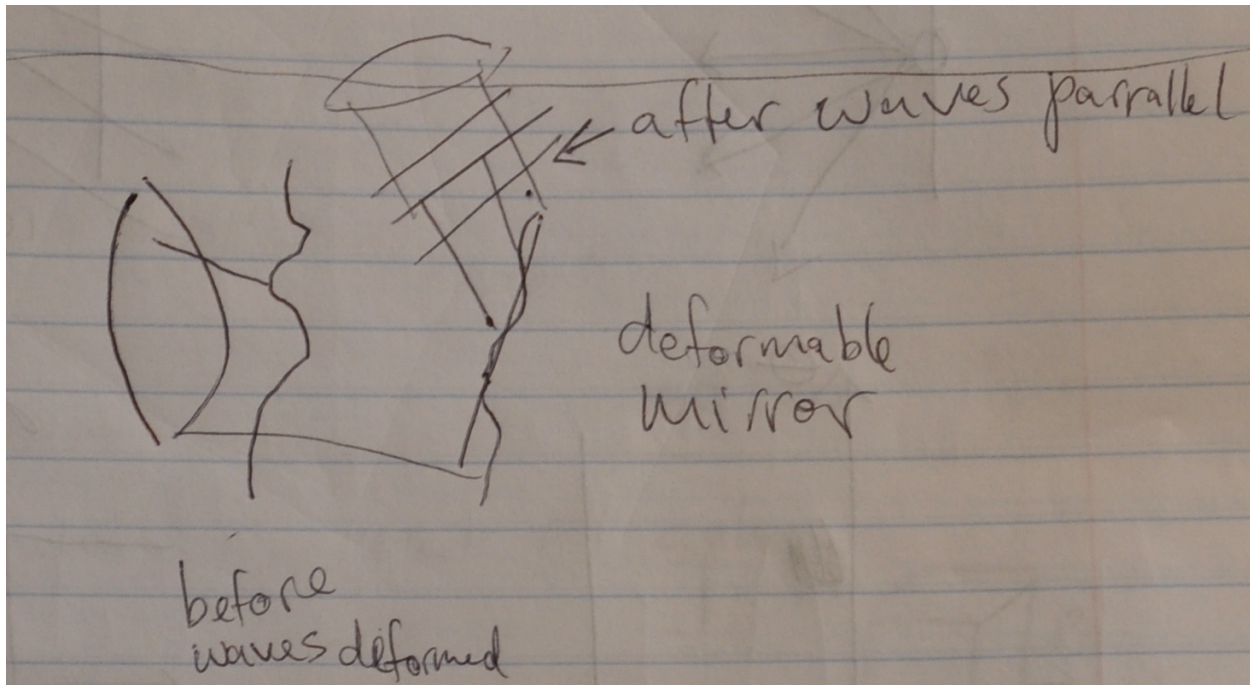 after waves parrallel
deformable
mirror
before
waves deformed